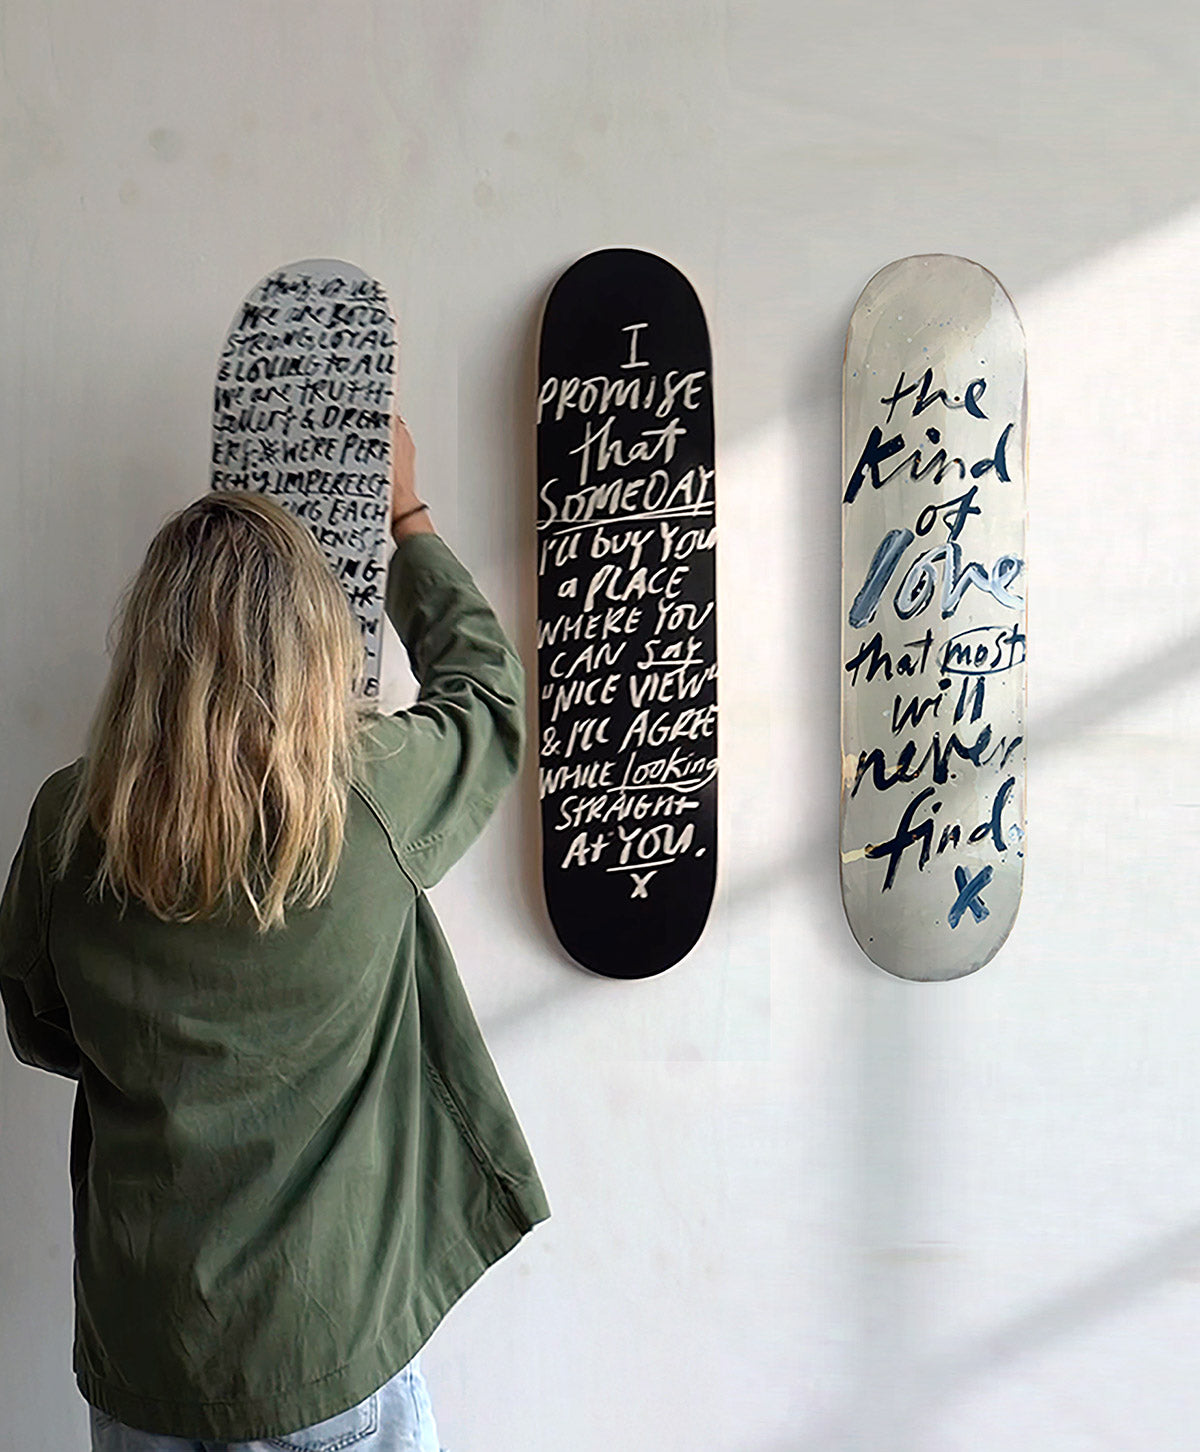 this is us
We are BOLD
STRONG LOYAL
& LOVING TO ALL
We are TRUTH-
& DREAM
ERS * WERE PERF
ECTLY IMPERFECT
EACH
I
PROMISE
that
SOMEDAY
I'll buy YOU
a PLACE
WHERE YOU
CAN SAY
"NICE VIEW"
& I'll AGREE
WHILE Looking
STRAIGHT
At YOU.
X
the
kind
of
love
that most
will
never
find.
X